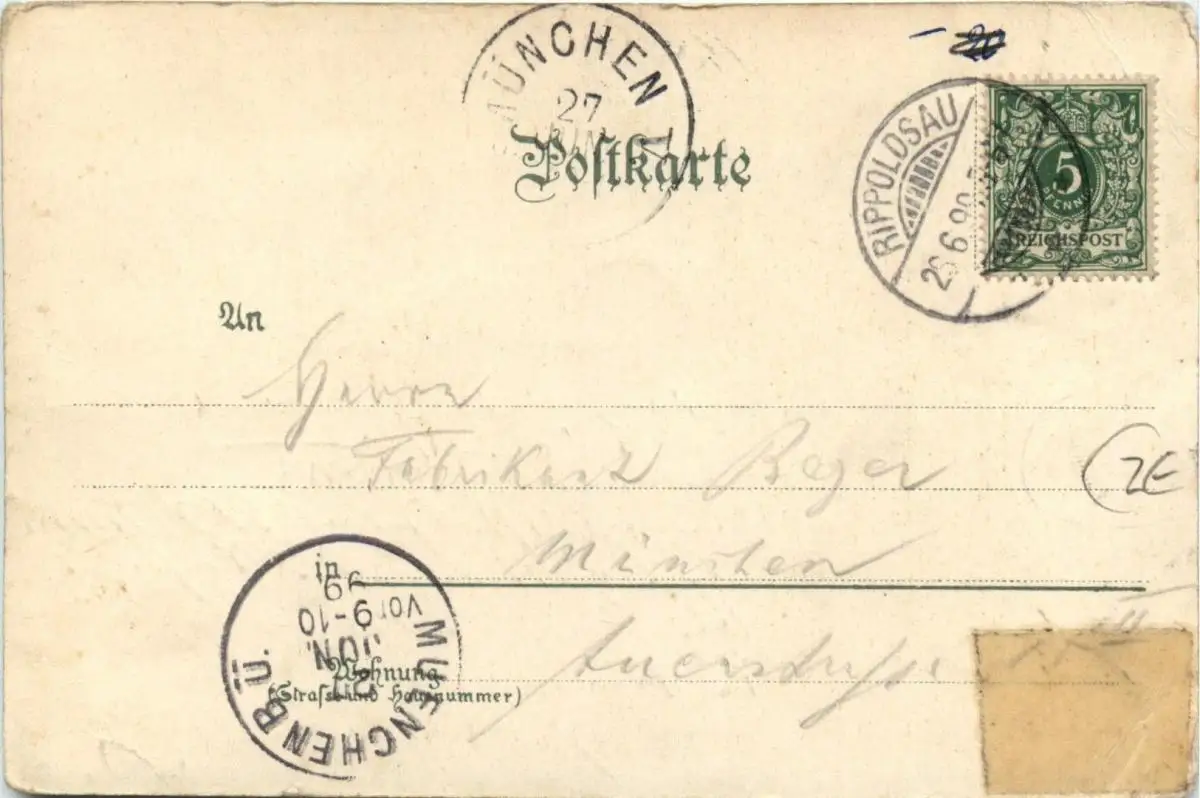 20
MÜNCHEN
27
JUN
Postkarte
RIPPOLDSAU
26.6.99
5
PFENNIG
REICHSPOST
An
Herrn
Fabrikant Beyer
(ZE
München
in
MUENCHEN B.Ü.
JUN.
Vor 9-10
99
Wohnung
(Strasse und Hausnummer)